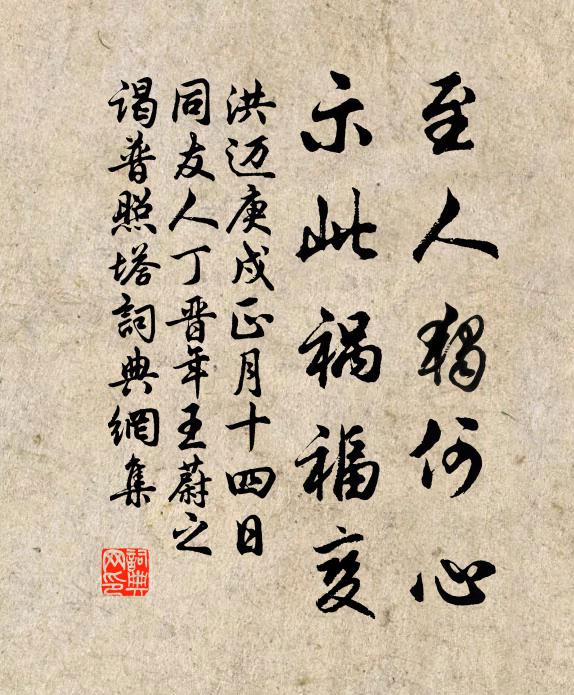 至人獨何心
示此禍福變
洪迈庚戌正月十四日
同友人丁晋年王蔚之
谒普照塔詞典網集
詞典网印